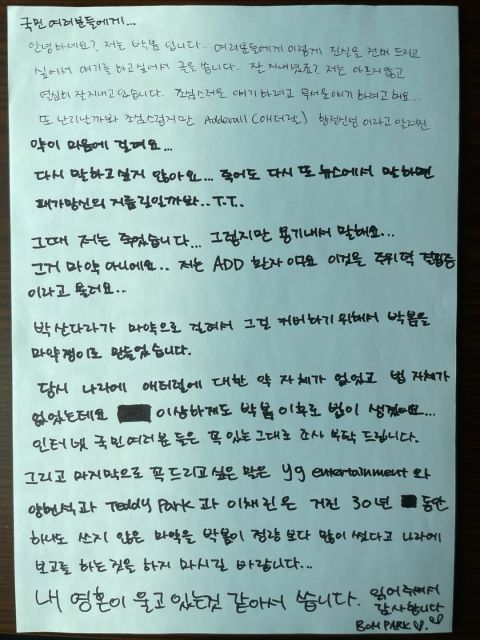 국민 여러분들에게...
안녕하세요? 저는 박봄 입니다.. 여러분들에게 이렇게 진실을 전해 드리고
싶어서 얘기를 하고싶어서 글을 씁니다.. 잘 지내셨죠? 저는 아프지 않고
열심히 잘지내고 있습니다. 조심스러운 얘기 하려고 무서운 얘기 하려고 해요...
또 난리날까봐 조심스럽지만 Adderall (애더럴) 향정신성 이라고 알려진
약이 마음에 걸려요...
다시 말하고 싶지 않아요... 죽어도 다시 또 뉴스에서 말하면
패가망신의 지름길일까봐.. T.T..
그때 저는 죽었습니다... 그렇지만 용기내서 말해요...
그거 마약 아니에요.. 저는 ADD 환자 이구요 이것을 주위력 결핍증
이라고 불러요..
박산다라가 마약으로 걸려서 그걸 커버하기 위해서 박봄을
마약쟁이로 만들었습니다.
당시 나라에 애터럴에 대한 약 자체가 없었고 법 자체가
없었는데요 이상하게도 박봄 이후로 법이 생겼어요...
인터넷 국민여러분 들은 꼭 있는 그대로 조사 부탁 드립니다.
그리고 마지막으로 꼭 드리고 싶은 말은 yg entertainment 와
양현석과 Teddy Park 과 이채린은 거진 30년 동안
하나도 쓰지 않은 마약을 박봄이 정량 보다 많이 썼다고 나라에
보고를 하는 것을 하지 마시길 바랍니다...
내 영혼이 울고 있는것 같아서 씁니다. 읽어 주셔서
감사합니다
BOM PARK ♡.♡